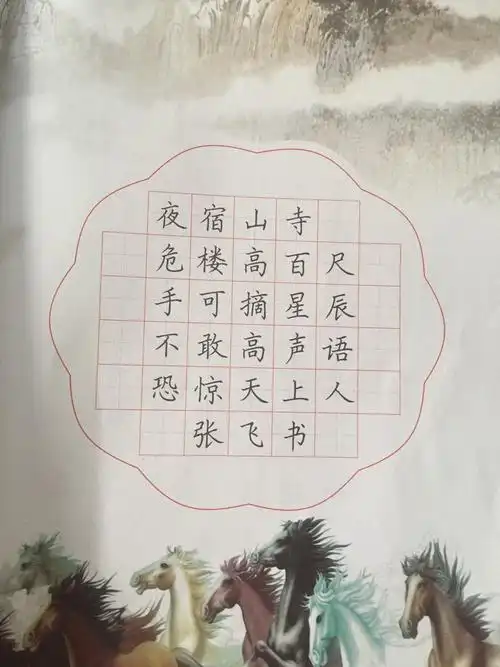 夜宿山寺
危楼高百尺
手可摘星辰
不敢高声语
恐惊天上人
张飞书